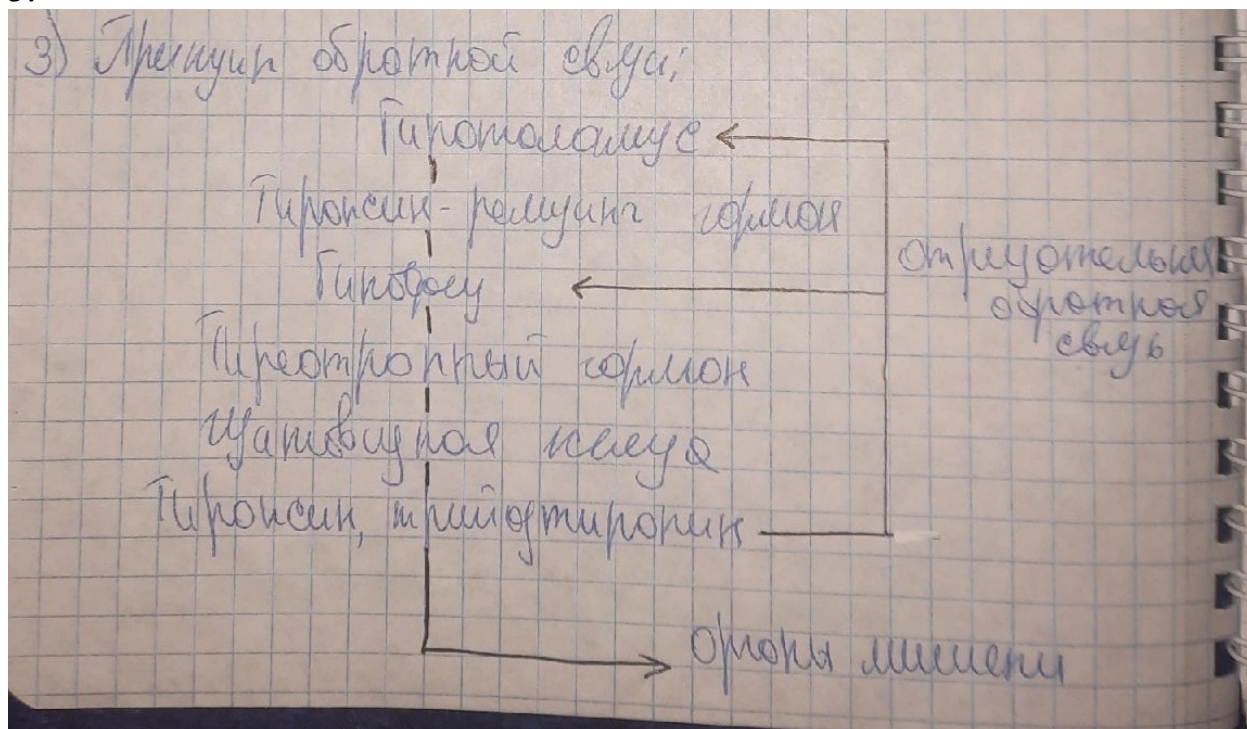 3) Принцип обратной связи:
Гипоталамус
Тироксин-релизинг гормон
Гипофиз
Тиреотропный гормон
Щитовидная железа
Тироксин, трийодтиронин
отрицательная
обратная
связь
Органы мишени